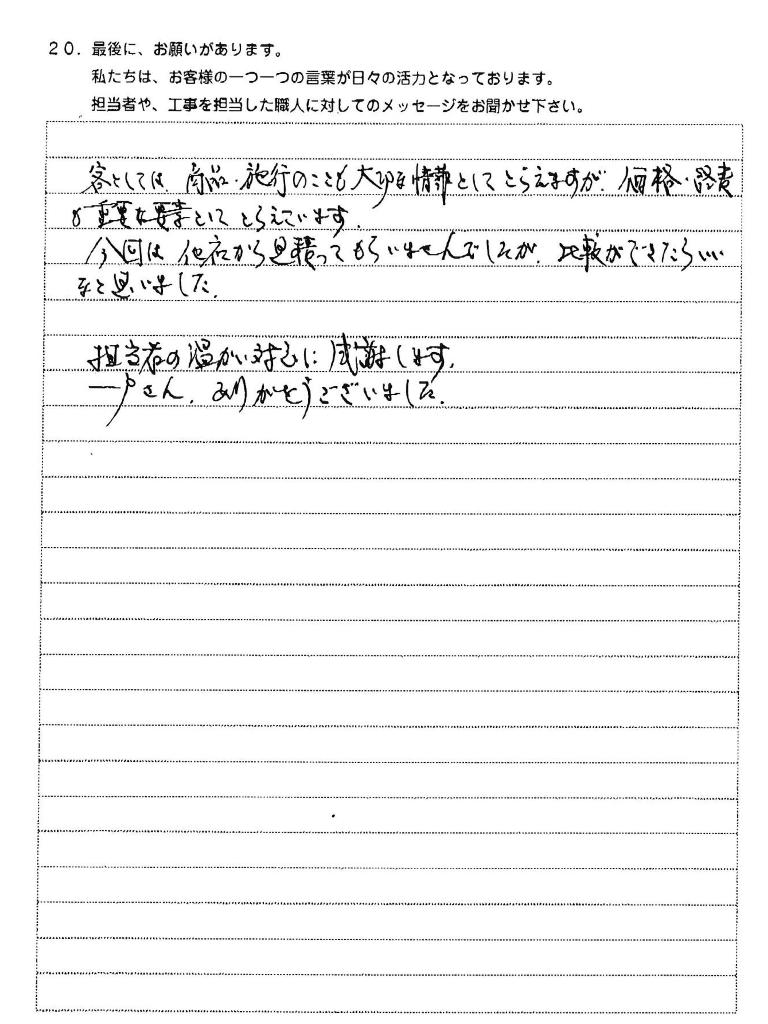 20．最後に、お願いがあります。
私たちは、お客様の一つ一つの言葉が日々の活力となっております。
担当者や、工事を担当した職人に対してのメッセージをお聞かせ下さい。
客としては、商品・施行のことも大切な情報としてとらえますが、価格・経費
も重要な要素としてとらえています。
今回は他社から見積ってもらいませんでしたが、比較ができたらいい
なと思いました。
担当者の温かい対応に感謝します。
一戸さん、ありがとうございました。